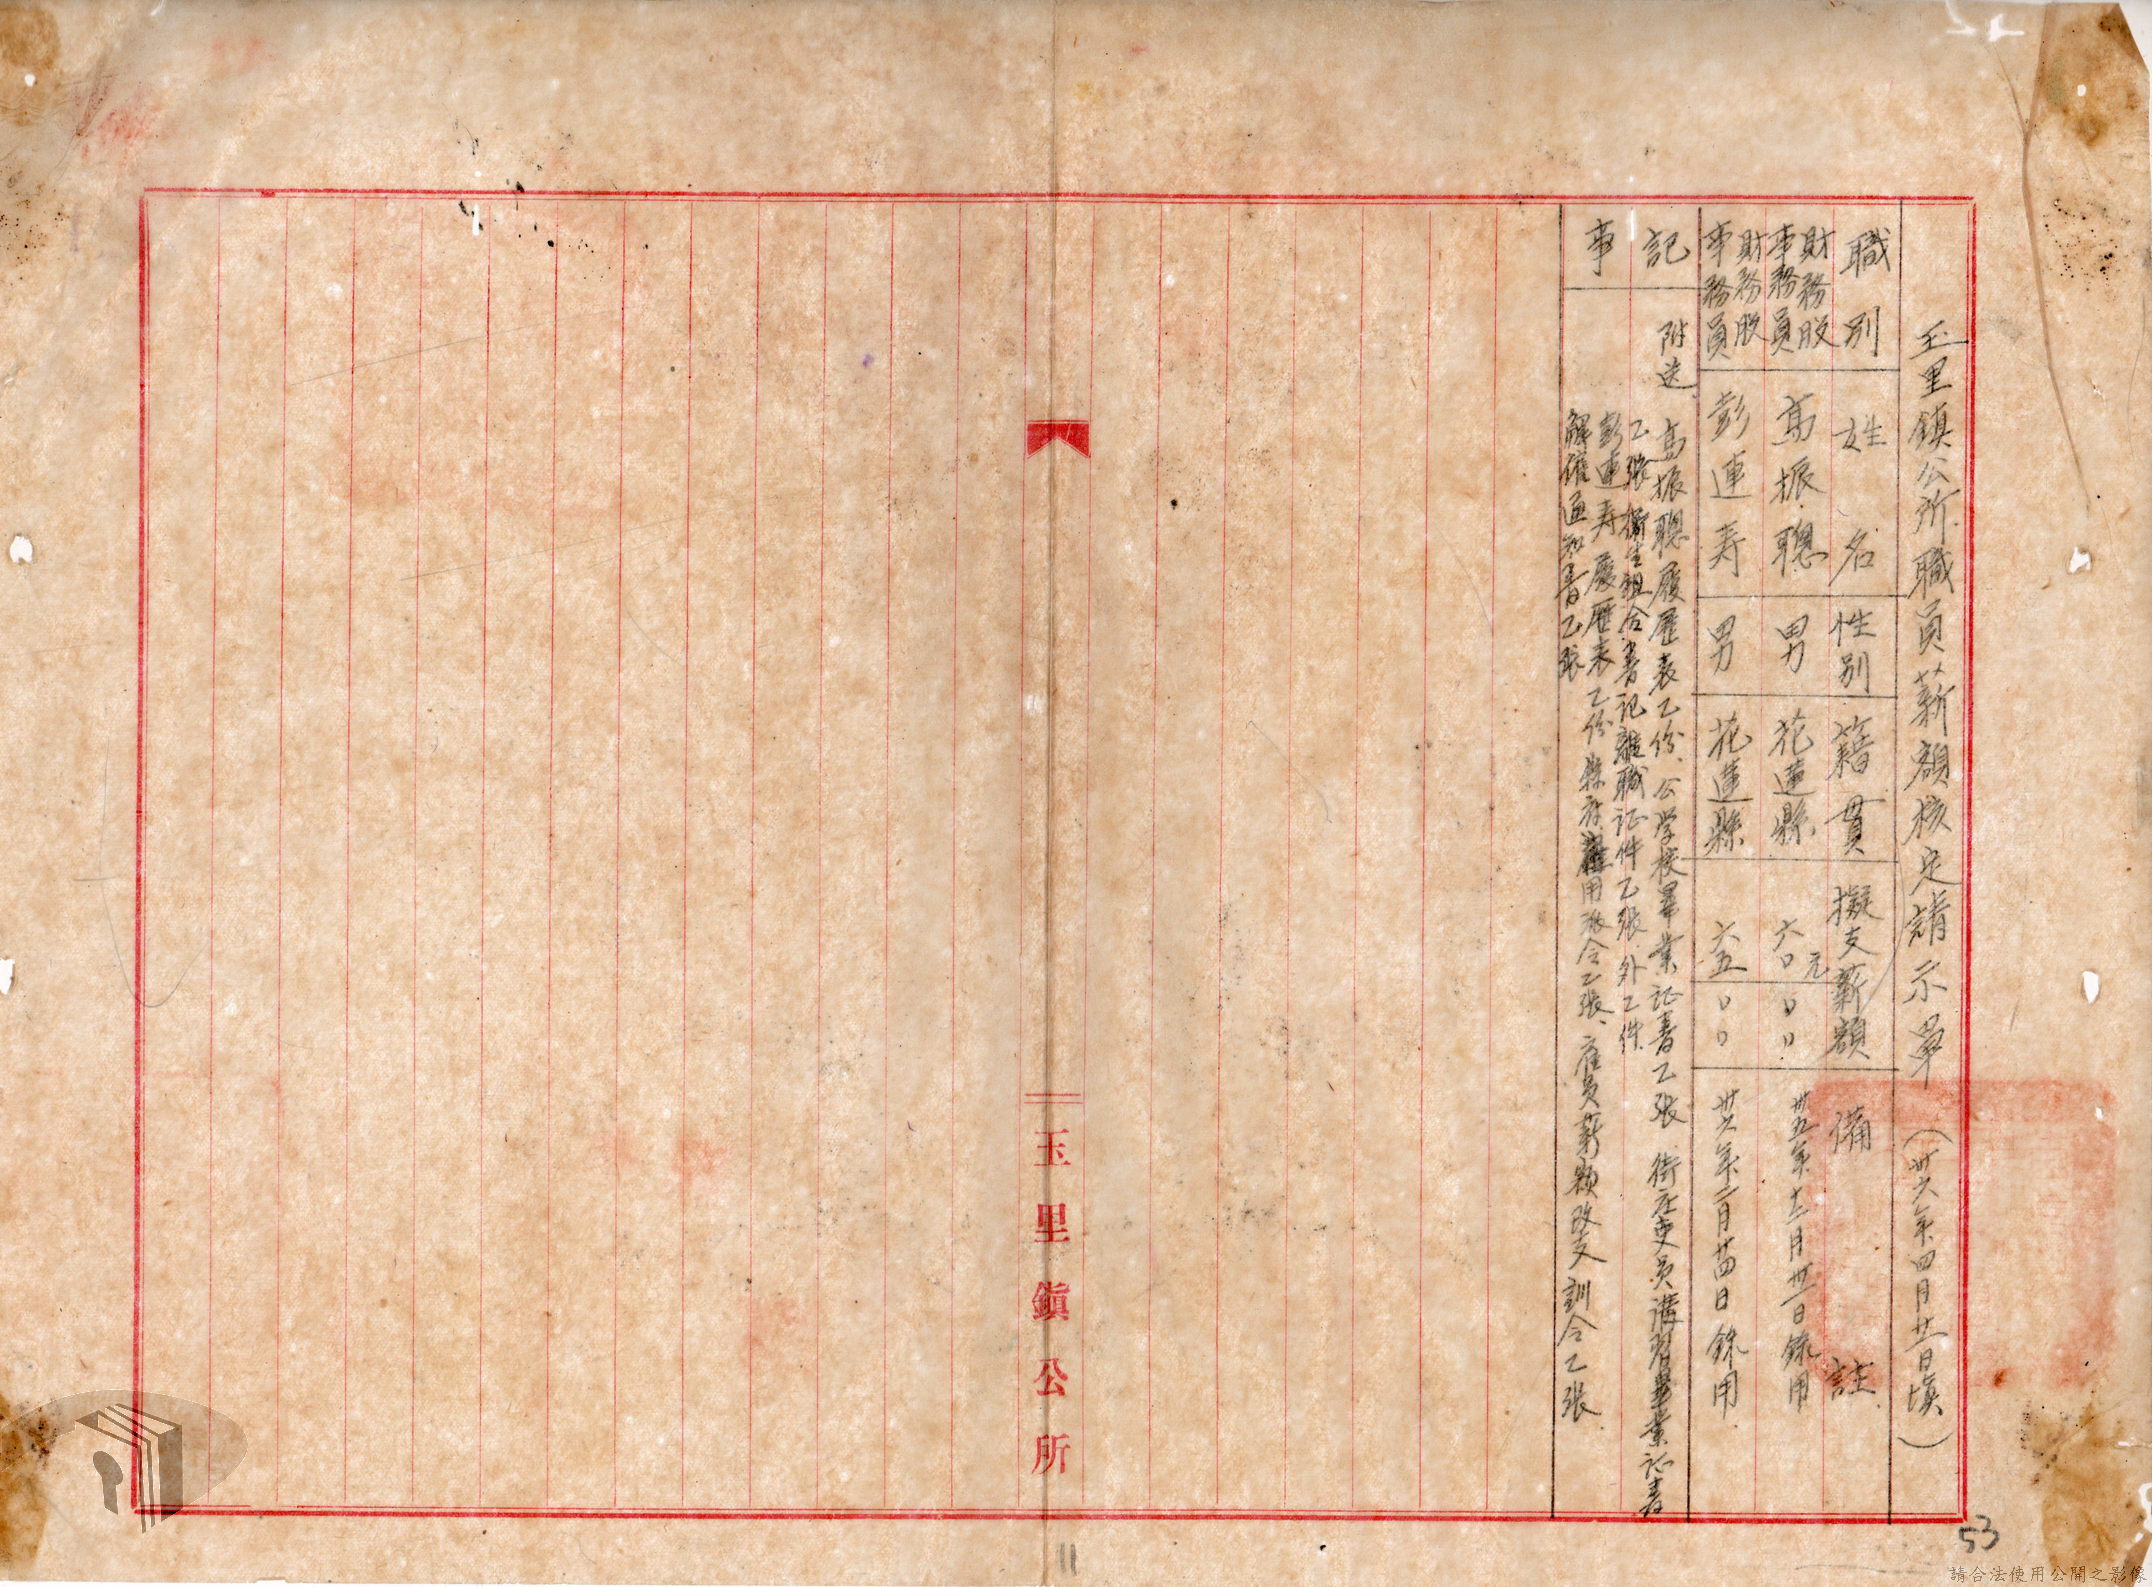 玉里鎮公所職員薪額核定請示單（卅六年四月廿一日塡）
職別 姓名 性別 籍貫 擬支薪額 備註
財務股事務員 高振聰 男 花蓮縣 六〇元〇〇 卅五年十二月卅一日錄用
財務股事務員 彭連寿 男 花蓮縣 六五〇〇 卅六年二月廿四日錄用
記事
附送
高振聰履歷表乙份、公学校畢業証書乙張、街庄吏員講習畢業証書
乙張 衛生組合書記離職証件乙張、外乙件
彭連寿 履歷表乙份 縣府雇用派令乙張、雇員薪額改支訓令乙張
解僱通知書乙張
玉里鎮公所
11
53
請合法使用公開之影像